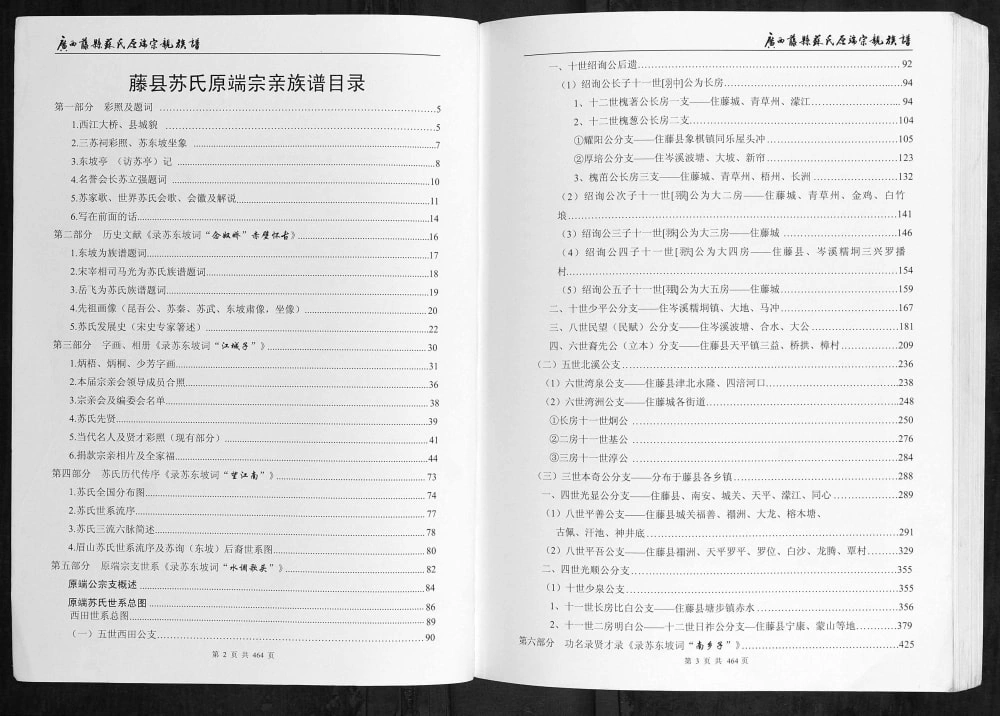 廣西藤縣蘇氏原端宗親族譜
藤县苏氏原端宗亲族谱目录
第一部分 彩照及题词 ........5
1.西江大桥、县城貌 ........5
2.三苏祠彩照、苏东坡坐象 ........7
3.东坡亭 （访苏亭）记 ........8
4.名誉会长苏立强题词 ........10
5.苏家歌、世界苏氏会歌、会徽及解说........11
6.写在前面的话........14
第二部分 历史文献《录苏东坡词“念奴娇”赤壁怀古》........16
1.东坡为族谱题词........17
2.宋宰相司马光为苏氏族谱题词........18
3.岳飞为苏氏族谱题词........19
4.先祖画像（昆吾公、苏秦、苏武、东坡肃像，坐像）........20
5.苏氏发展史（宋史专家箸述）........22
第三部分 字画、相册《录苏东坡词“江城子”》........30
1.炳梧、炳桐、少芳字画........31
2.本届宗亲会领导成员合照........36
3.宗亲会及编委会名单........38
4.苏氏先贤........39
5.当代名人及贤才彩照（现有部分）........41
6.捐款宗亲相片及全家福........44
第四部分 苏氏历代传序《录苏东坡词“望江南”》........73
1.苏氏全国分布图........74
2.苏氏世系流序........77
3.苏氏三流六脉简述........78
4.眉山苏氏世系流序及苏洵（东坡）后裔世系图........80
第五部分 原端宗支世系《录苏东坡词“水调歌头”》........82
原端公宗支概述........84
原端苏氏世系总图........86
西田世系总图........89
（一）五世西田公支........90
第 2 页 共 464 页
廣西藤縣蘇氏原端宗親族譜
一、十世绍洵公后遗........92
（1）绍洵公长子十一世[翀]公为长房........94
1、十二世槐著公长房一支——住藤城、青草州、濛江........94
2、十二世槐葱公长房二支........104
①耀阳公分支——住藤县象棋镇同乐屋头冲........105
②厚培公分支——住岑溪波塘、大坡、新帘........123
3、槐茁公长房三支——住藤城、青草州、梧州、长洲........132
（2）绍洵公次子十一世公为大二房——住藤城、青草州、金鸡、白竹
埌........141
（3）绍洵公三子十一世公为大三房——住藤城........146
（4）绍洵公四子十一世公为大四房——住藤县、岑溪糯垌三兴罗播
村........154
（5）绍洵公五子十一世公为大五房——住藤城........159
二、十世少平公分支——住岑溪糯垌镇、大地、马冲........167
三、八世民望（民赋）公分支——住岑溪波塘、合水、大公........181
四、六世裔先公（立本）分支——住藤县天平镇三益、桥拱、樟村........209
（二）五世北溪公支........236
（1）六世湾泉公支——住藤县津北永隆、四涪河口........238
（2）六世湾洲公支——住藤城各街道........248
①长房十一世炯公........250
②二房十一世基公........276
③三房十一世淳公........284
（三）三世本奇公分支——分布于藤县各乡镇........288
一、四世光显公分支——住藤县、南安、城关、天平、濛江、同心........289
（1）八世平善公支——住藤县城关福善、禤洲、大龙、榕木塘、
古佩、汗池、神井底........291
（2）八世平吾公支——住藤县禤洲、天平罗平、罗位、白沙、龙腾、覃村........329
二、四世光顺公分支........355
（1）十世少泉公支........355
1、十一世长房比白公支——住藤县塘步镇赤水........356
2、十一世二房明白公——十二世日祚公分支—住藤县宁康、蒙山等地........379
第六部分 功名录贤才录《录苏东坡词“南乡子”》........425
第 3 页 共 464 页